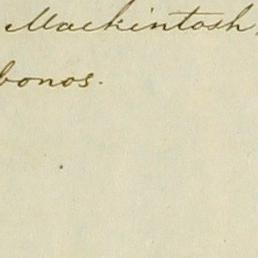 Mackintosh,
bonos.